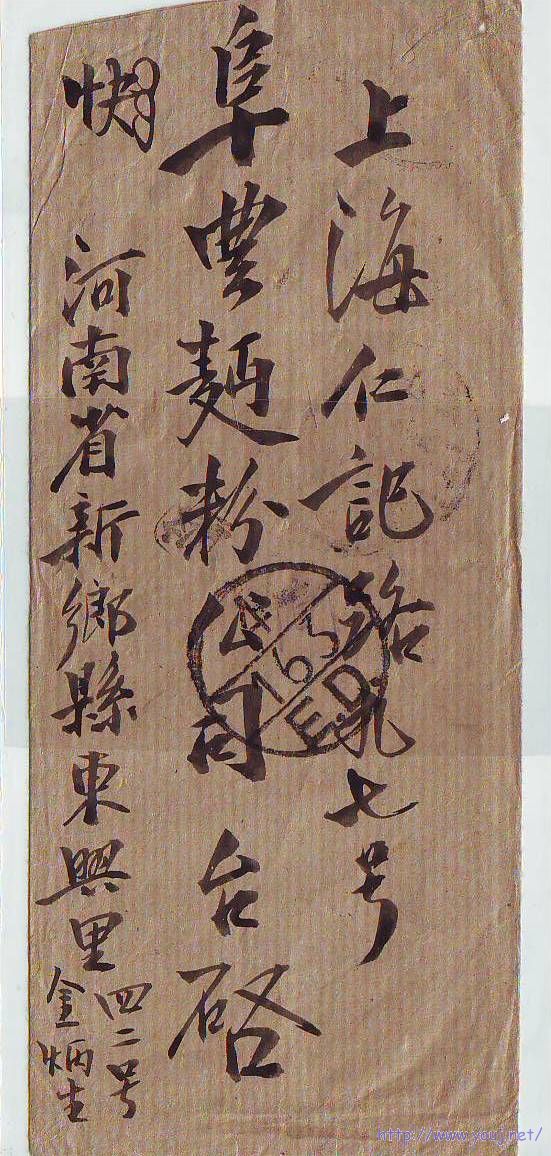 上海仁記路九七号
阜豐麵粉公司 台啓
快 河南省新鄉縣東興里
四二号
金炳生
163
E.D.
http://www.youj.net/